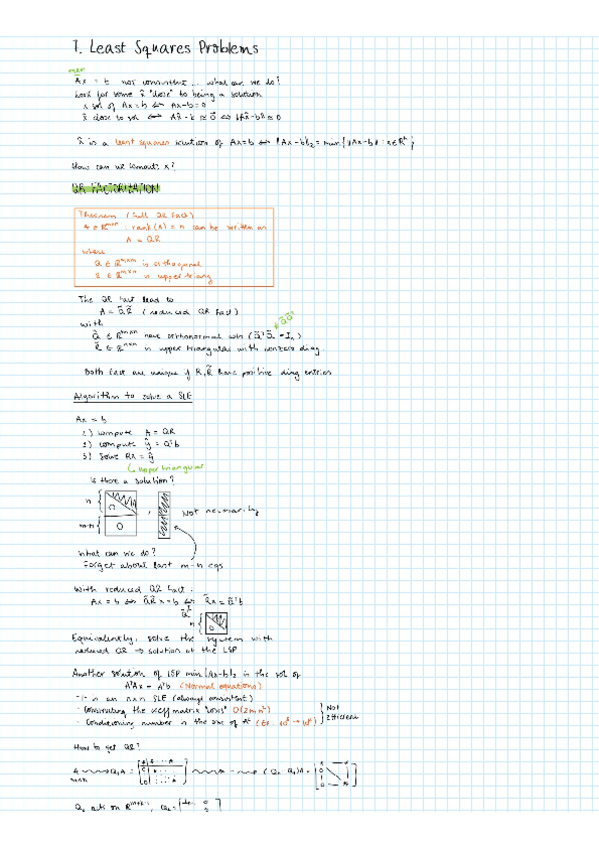 7. Least Squares Problems
Ax = b not consistent... what can we do?
Look for some x̂ "close" to being a solution
x sol of Ax=b ⇔ Ax-b=0
x̂ close to sol ⇔ Ax̂-b ≈ 0 ⇔ ‖Ax̂-b‖ ≈ 0
x̂ is a least squares solution of Ax=b ⇔ ‖Ax̂-b‖₂ = min{‖Ax-b‖ : x∈ℝⁿ}
How can we compute x̂?
QR FACTORIZATION
Theorem (Full QR Fact)
A ∈ ℝᵐˣⁿ : rank(A) = n can be written as
A = QR
where
Q ∈ ℝᵐˣᵐ is orthogonal
R ∈ ℝᵐˣⁿ is upper triang
The QR fact lead to
A = Q̂R̂ (reduced QR Fact)
with
≠ Q̂Q̂ᵀ
Q̂ ∈ ℝᵐˣⁿ have orthonormal cols (Q̂ᵀQ̂ = Iₙ)
R̂ ∈ ℝⁿˣⁿ is upper triangular with nonzero diag.
Both fact are unique if R, R̂ have positive diag entries
Algorithm to solve a SLE
Ax = b
1) compute A = QR
2) compute ŷ = Qᵀb
3) Solve Rx = ŷ
upper triangular
Is there a solution?
n
0
,
Not necessarily
m-n
0
What can we do?
Forget about last m-n eqs
With reduced QR fact:
Ax = b ⇔ Q̂R̂x = b ⇔ R̂x = Q̂ᵀb
n
Equivalently, solve the system with
reduced QR → solution of the LSP
Another solution of LSP min‖Ax-b‖₂ is the sol of
AᵀAx = Aᵀb (Normal equations)
- It is an nxn SLE (always consistent)
- Constructing the coeff matrix "costs" O(2mn²)
- Conditioning number is the one of A²
Not
Efficient
How to get QR?